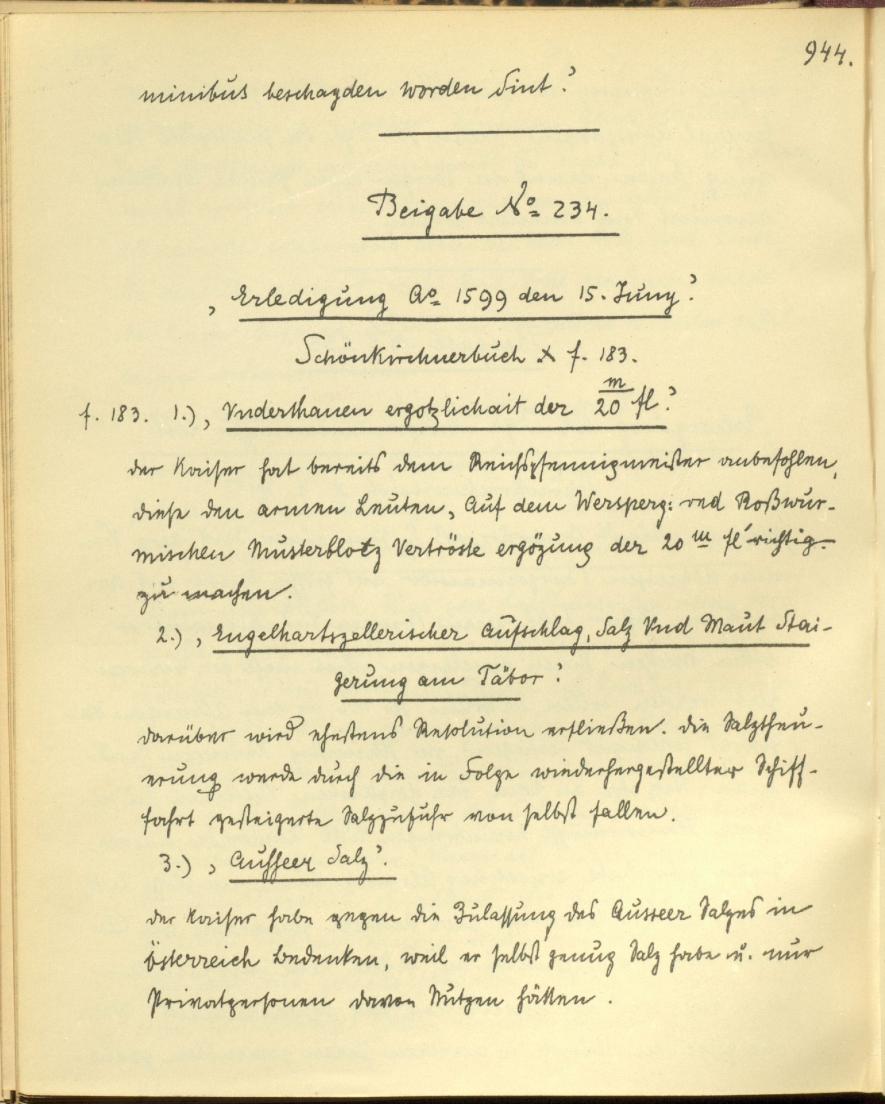 944.
minibus beschagden worden sint ?
Beigabe No 234.
„ Erledigung Ao 1599 den 15. Juny ?
Schönkirchnerbuch X f. 183.
f. 183. 1.) „ Vnderthanen ergotzlichait der 20 m fl ?
der Kaiser hat bereits dem Reichspfennigmeister anbefohlen,
diese den armen Leuten, auf dem Wersperg: vnd Roßwur-
mischen Musterblotz Vertröste ergözung der 20 m fl richtig
zu machen.
2.) „ Engelhartszellerischer aufschlag, Salz Vnd Maut Stai-
gerung am Täbor ?
darüber wird ehestens Resolution erfließen. die Salztheu-
erung werde durch die in Folge wiederhergestellter Schiff-
fahrt gesteigerte Salzzufuhr von selbst fallen.
3.) „ Ausseer Salz ?
der Kaiser habe gegen die Zulassung des Ausseer Salzes in
Österreich Bedenken, weil er selbst genug Salz habe u. nur
Privatpersonen davon Nutzen hätten.